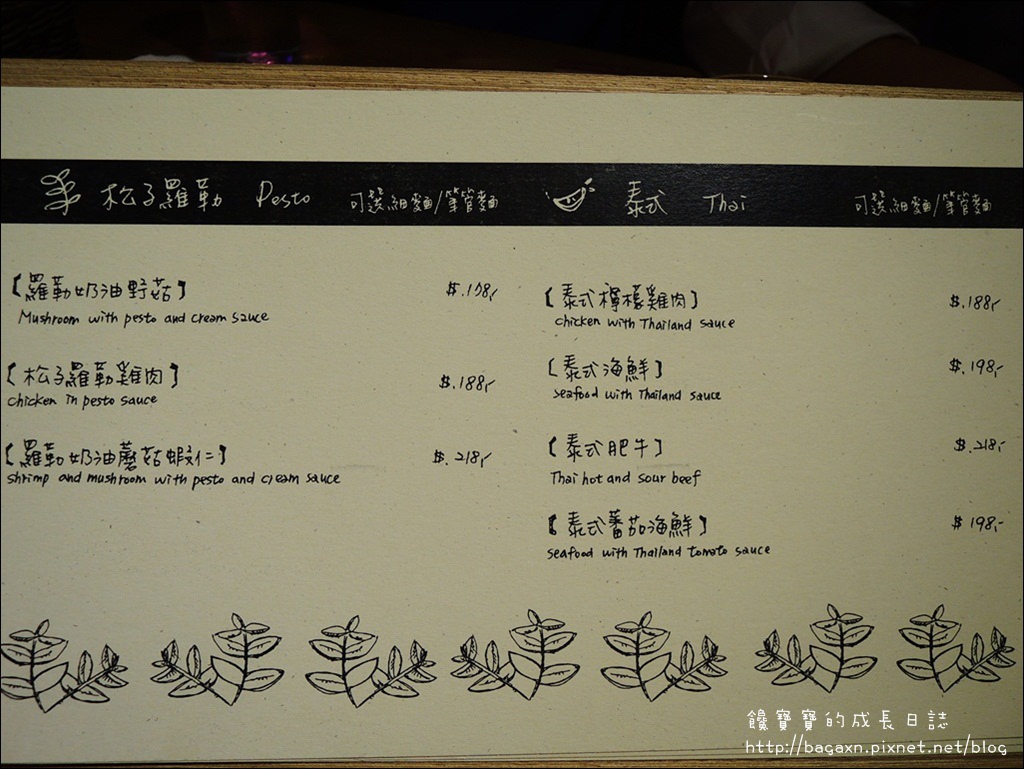 松子羅勒 Pesto 可選細麵/筆管麵
【羅勒奶油野菇】
Mushroom with pesto and cream sauce
【松子羅勒雞肉】 $.188,-
chicken in pesto sauce
【羅勒奶油蘑菇蝦仁】 $.218,-
shrimp and mushroom with pesto and cream sauce
泰式 Thai 可選細麵/筆管麵
【泰式檸檬雞肉】 $.188,-
chicken with Thailand sauce
【泰式海鮮】 $.198,-
seafood with Thailand sauce
【泰式肥牛】 $.218,-
Thai hot and sour beef
【泰式蕃茄海鮮】 $198,-
seafood with Thailand tomato sauce
饞寶寶的成長日誌
http://bagaxn.pixnet.net/blog